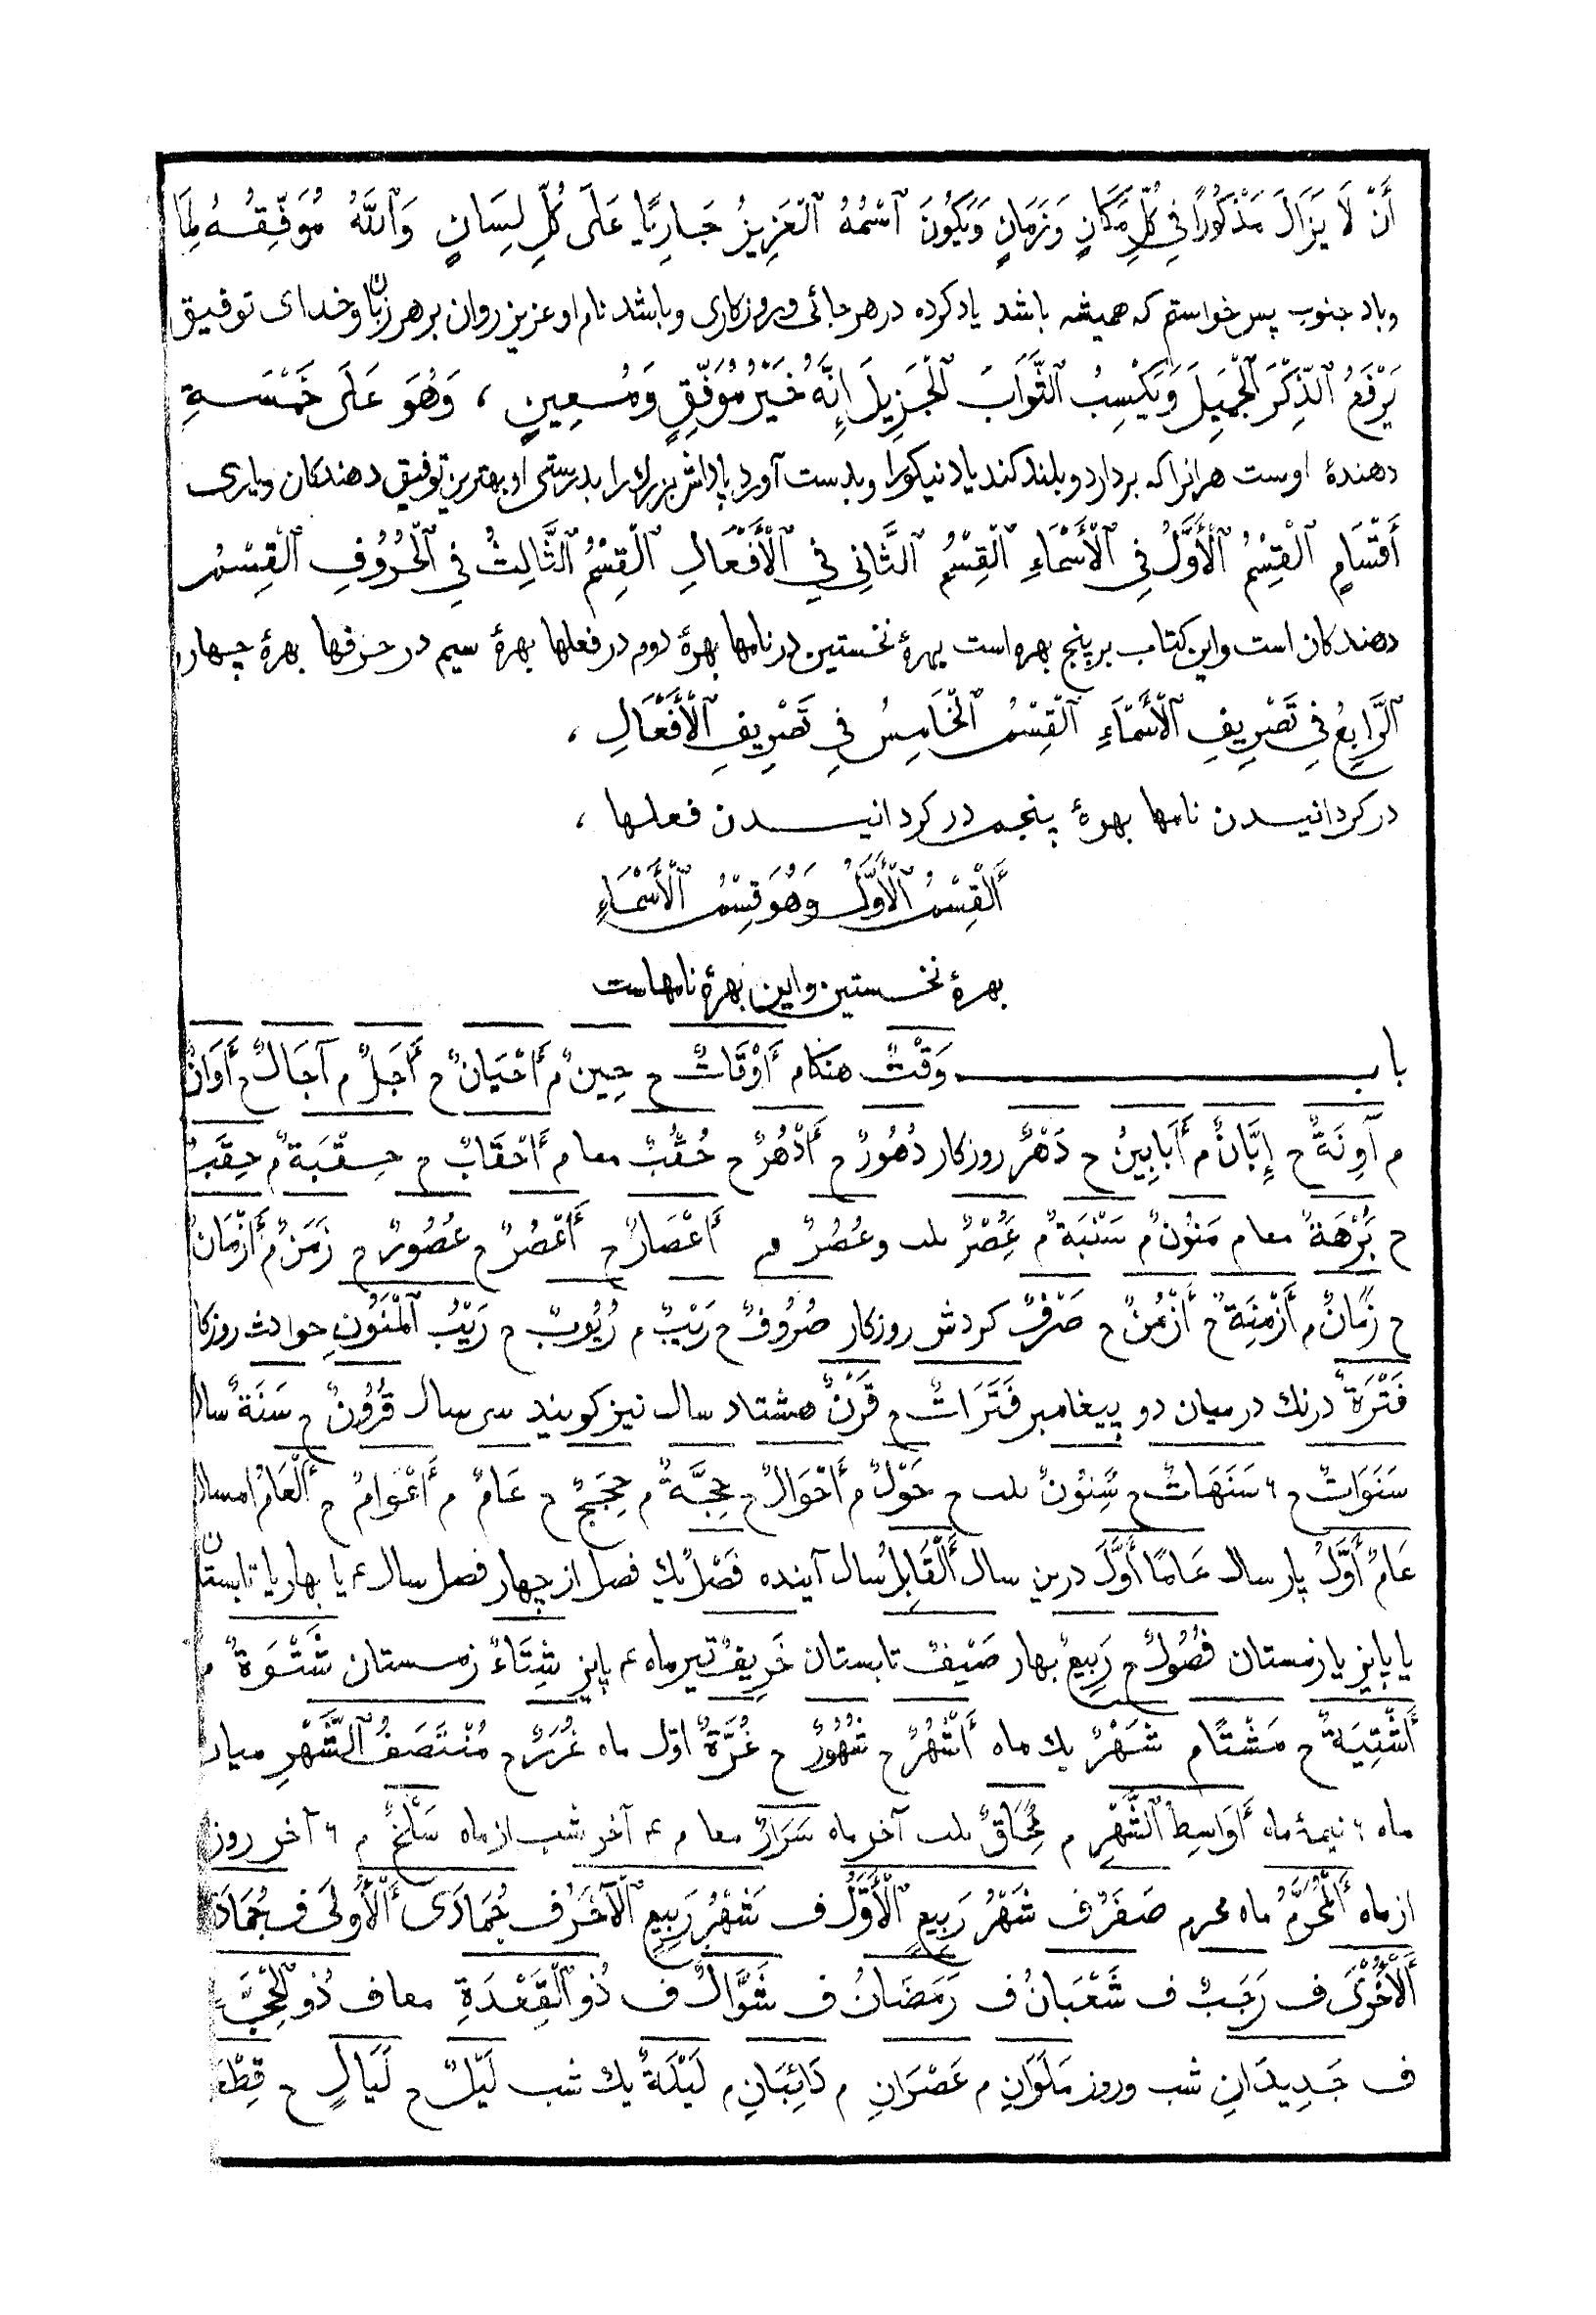 أَنْ لَا يَزَالَ مَذْكُورًا فِي كُلِّ مَكَانٍ وَزَمَانٍ وَيَكُونَ ٱسْمُهُ ٱلْعَزِيزُ جَارِيًا عَلَى كُلِّ لِسَانٍ وَٱللّٰهُ مُوَفِّقُهُ لِمَا
وباد جنوب پس خواستم كه هميشه باشد ياد كرده در هر جائى وروزكارى وباشد نام او عزيز روان بر هر زبان وخداى توفيق
يَرْفَعُ ٱلذِّكْرَ ٱلْجَمِيلَ وَيَكْسِبُ ٱلثَّوَابَ ٱلْجَزِيلَ إِنَّهُ خَيْرُ مُوَفِّقٍ وَمُعِينٍ ، وَهُوَ عَلَى خَمْسَةِ
دهندۀ اوست هر انرا كه بردارد وبلند كند ياد نيكورا وبدست آورد پاداش بزرك را بدرستى او بهترين توفيق دهندكان ويارى
أَقْسَامٍ ٱلْقِسْمُ ٱلْأَوَّلُ فِي ٱلْأَسْمَاءِ ٱلْقِسْمُ ٱلثَّانِي فِي ٱلْأَفْعَالِ ٱلْقِسْمُ ٱلثَّالِثُ فِي ٱلْحُرُوفِ ٱلْقِسْمُ
دهندكان است واين كتاب بر پنج بهره است بهرۀ نخستين در نامها بهرۀ دوم در فعلها بهرۀ سيم در حرفها بهرۀ چهار
ٱلرَّابِعُ فِي تَصْرِيفِ ٱلْأَسْمَاءِ ٱلْقِسْمُ ٱلْخَامِسُ فِي تَصْرِيفِ ٱلْأَفْعَالِ ،
در كردانيدن نامها بهرۀ پنجم در كردانيدن فعلها ،
أَلْقِسْمُ ٱلْأَوَّلُ وَهُوَ قِسْمُ ٱلْأَسْمَاءِ
بهرۀ نخستين واين بهرۀ نامهاست
باب وَقْتٌ هنكام أَوْقَاتٌ ج حِينٌ م أَحْيَانٌ ج أَجَلٌ م آجَالٌ ج أَوَانٌ
م آوِنَةٌ ج إِبَّانٌ م أَبَابِينُ ج دَهْرٌ روزكار دُهُورٌ ج أَدْهُرٌ ج حُقُبٌ معا م أَحْقَابٌ ج حِقْبَةٌ م حِقَبٌ
ج بُرْهَةٌ معا م مَنُونٌ م سَنْبَةٌ م عَصْرٌ ىلب وعُصُرٌ م أَعْصَارٌ ج أَعْصُرٌ ج عُصُورٌ ج زَمَنٌ م أَزْمَانٌ
ج زَمَانٌ م أَزْمِنَةٌ ج أَزْمُنٌ ج صَرْفٌ كردش روزكار صُرُوفٌ ج رَيْبٌ م رُيُوبٌ ج رَيْبُ ٱلْمَنُونِ حوادث روزكا
فَتْرَةٌ درنك در ميان دو پيغامبر فَتَرَاتٌ ج قَرْنٌ هشتاد سال نيز كويند سى سال قُرُونٌ ج سَنَةٌ سال
سَنَوَاتٌ ج ٦ سَنَهَاتٌ ج سِنُونٌ ىلب ج حَوْلٌ م أَحْوَالٌ ج حِجَّةٌ م حِجَجٌ ج عَامٌ م أَعْوَامٌ ج أَلْعَامُ امسال
عَامُ أَوَّلَ پار سال عَامًا أَوَّلَ درين سال أَلْقَابِلُ سال آينده فَصْلٌ يك فصل از چهار فصل سال ع يا بهار يا تابستان
يا پايز يا زمستان فُصُولٌ ج رَبِيعٌ بهار صَيْفٌ تابستان خَرِيفٌ تيرماه ع پايز شِتَاءٌ زمستان شَتْوَةٌ م
أَشْتِيَةٌ ج مَشْتًا م شَهْرٌ يك ماه أَشْهُرٌ ج شُهُورٌ ج غُرَّةٌ اوّل ماه غُرَرٌ ج مُنْتَصَفُ ٱلشَّهْرِ ميان
ماه ٦ نيمۀ ماه أَوَاسِطُ ٱلشَّهْرِ م مُحَاقٌ ىلب آخر ماه سَرَارٌ معا م ع آخر شب از ماه سَلْخٌ م ٦ آخر روز
از ماه أَلْمُحَرَّمُ ماه محرم صَفَرٌ ف شَهْرُ رَبِيعٍ ٱلْأَوَّلُ ف شَهْرُ رَبِيعٍ ٱلْآخَرُ ف جُمَادَى ٱلْأُولَى ف جُمَادَ
أَلْأُخْرَى ف رَجَبٌ ف شَعْبَانُ ف رَمَضَانُ ف شَوَّالٌ ف ذُو ٱلْقَعْدَةِ معا ف ذُو ٱلْحِجَّ
ف جَدِيدَانِ شب وروز مَلَوَانِ م عَصْرَانِ م دَائِبَانِ م لَيْلَةٌ يك شب لَيْلٌ ج لَيَالٍ ج قِطْعَ